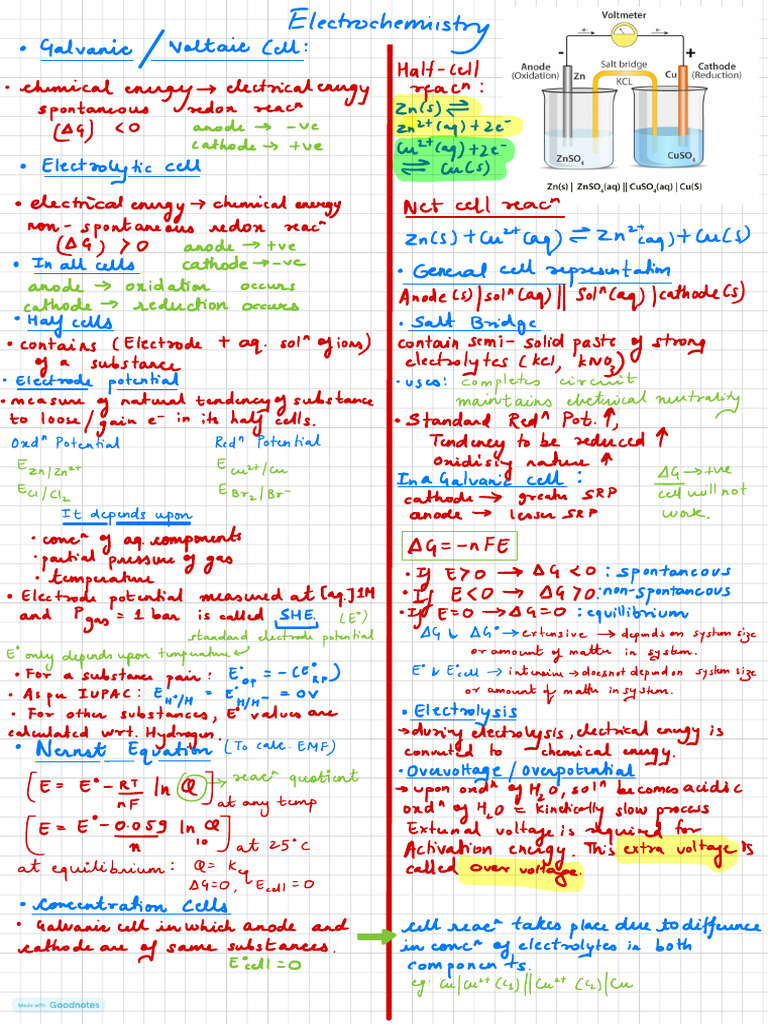 Electrochemistry
• Galvanic / Voltaic Cell:
• chemical energy → electrical energy
spontaneous redox reacⁿ
(ΔG) < 0 anode → -ve
cathode → +ve
• Electrolytic cell
• electrical energy → chemical energy
non-spontaneous redox reacⁿ
(ΔG) > 0 anode → +ve
• In all cells cathode → -ve
anode → oxidation occurs
cathode → reduction occurs
• Half cells
• contains (Electrode + aq. solⁿ of ions)
of a substance
• Electrode potential
• measure of natural tendency of substance
to loose/gain e⁻ in its half cells.
Oxdⁿ Potential Redⁿ Potential
E Zn/Zn²⁺ E Cu²⁺/Cu
E Cl/Cl₂ E Br₂/Br⁻
It depends upon
• concⁿ of aq. components
• partial pressure of gas
• temperature
• Electrode potential measured at [aq.] 1M
and Pgas = 1 bar is called SHE. (E°)
standard electrode potential
E° only depends upon temperature
• For a substance pair: E°op = -(E°RP)
• As per IUPAC: E°H⁺/H = E°H/H⁻ = 0V
• For other substances, E° values are
calculated wrt. Hydrogen.
• Nernst Equation (To calc. EMF)
[E = E° - RT/nF ln Q] → reacⁿ quotient
at any temp
[E = E° - 0.059/n ln₁₀ Q] at 25°C
at equilibrium: Q = Keq
ΔG=0, Ecell = 0
• Concentration Cells
• Galvanic cell in which anode and
cathode are of same substances.
E°cell = 0
Made with Goodnotes
Half-cell
reacⁿ:
Zn(s) ⇌
Zn²⁺(aq) + 2e⁻
Cu²⁺(aq) + 2e⁻
⇌ Cu(s)
Voltmeter
- +
Anode
(Oxidation)
Zn
Salt bridge
KCL
Cu
Cathode
(Reduction)
ZnSO₄
CuSO₄
Zn(s) | ZnSO₄(aq) || CuSO₄(aq) | Cu(S)
Net cell reacⁿ
Zn(s) + Cu²⁺(aq) ⇌ Zn²⁺(aq) + Cu(s)
• General cell representation
Anode(s) | solⁿ(aq) || Solⁿ(aq) | cathode(s)
• Salt Bridge
contain semi-solid paste of strong
electrolytes (KCl, KNO₃)
• uses: completes circuit
maintains electrical neutrality
• Standard Redⁿ Pot. ↑,
Tendency to be reduced ↑
Oxidising nature ↑
In a Galvanic cell:
cathode → greater SRP
anode → lesser SRP
ΔG → +ve
cell will not
work.
ΔG = -nFE
• If E>0 → ΔG < 0 : spontaneous
• If E<0 → ΔG > 0: non-spontaneous
• If E=0 → ΔG = 0 : equilibrium
ΔG & ΔG° → extensive → depends on system size
or amount of matter in system.
E° & E°cell → intensive → does not depend on system size
or amount of matter in system.
• Electrolysis
→ during electrolysis, electrical energy is
converted to → chemical energy.
• Overvoltage / overpotential
→ upon oxdⁿ of H₂O, solⁿ becomes acidic
oxdⁿ of H₂O = kinetically slow process
External voltage is required for
Activation energy. This extra voltage is
called over voltage.
cell reacⁿ takes place due to difference
in concⁿ of electrolytes in both
components.
eg: Cu|Cu²⁺ (C₁)||Cu²⁺ (C₂)|Cu